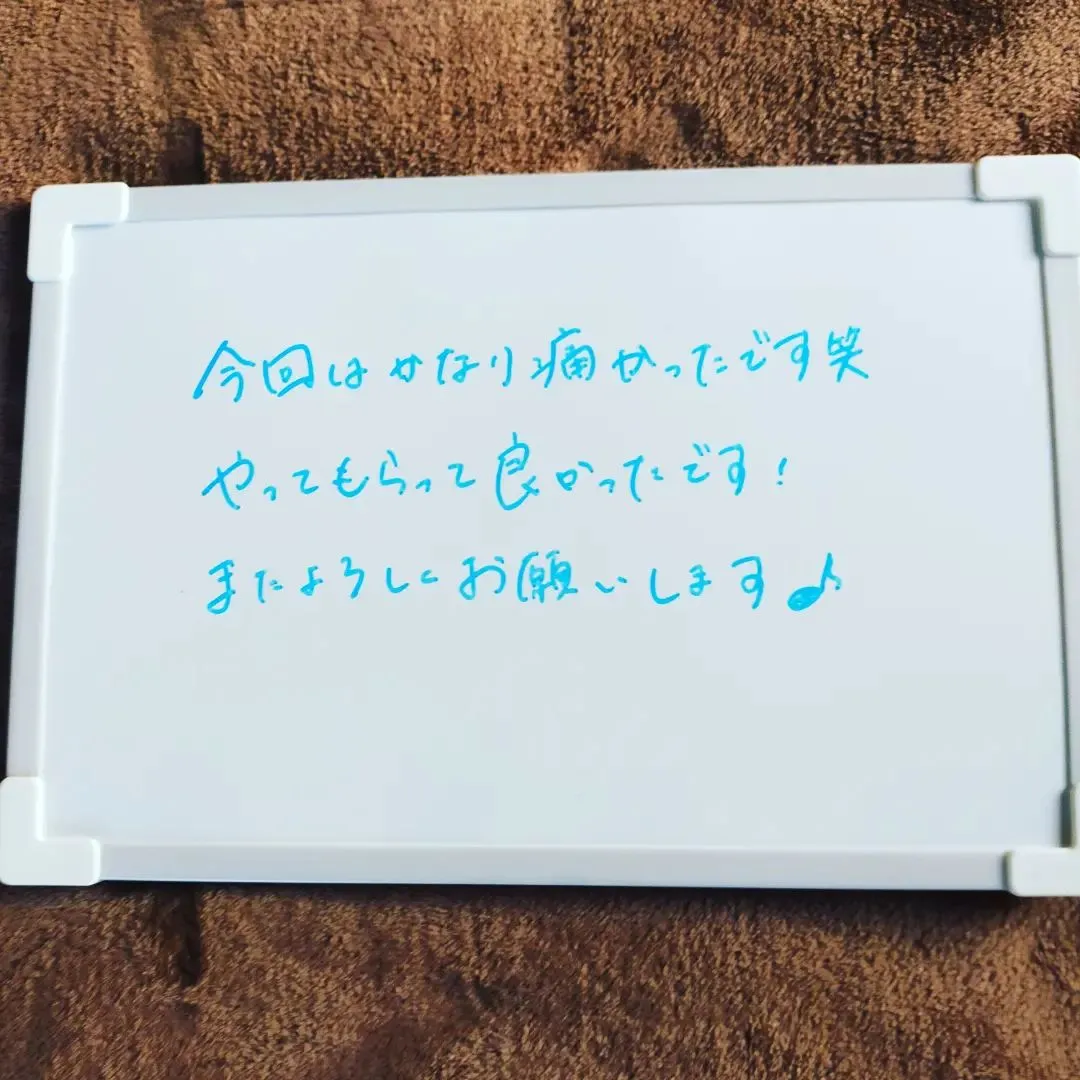 今回はかなり痛かったです笑
やってもらって良かったです!
またよろしくお願いします♪